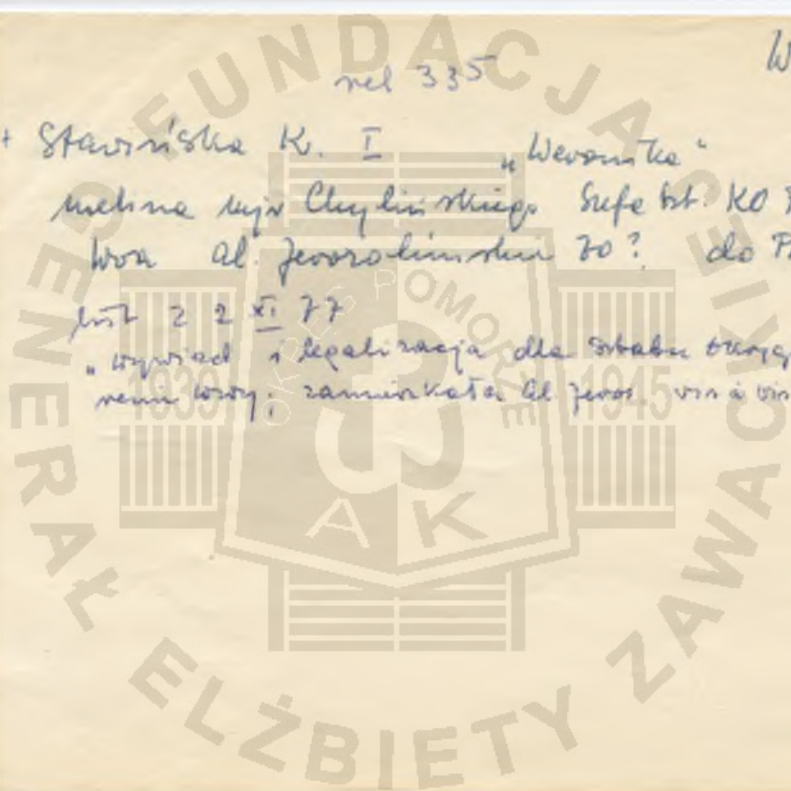 W
rel 335
+ Stawińska K. I „Weronika"
melina mjr Chylińskiego Szefa szt. KO
Wwa al. Jerozolimskie 70? do
list z 2 XI 77
„wywiad i legalizacja dla sztabu
zamieszkała al. Jeroz. vis à vis
FUNDACJA GENERAŁ ELŻBIETY ZAWACKIEJ
OKRĘG POMORZE
1939 1945
AK